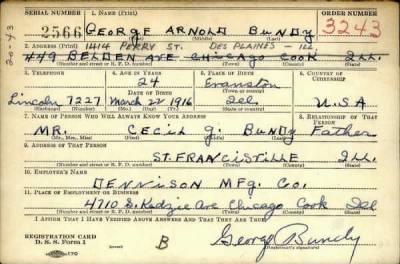 SERIAL NUMBER 1. NAME (Print) ORDER NUMBER
2566 GEORGE ARNOLD BUNDY 3243
(First) (Middle) (Last)
20-43
2. ADDRESS (Print) 1414 PERRY ST. DES PLAINES - ILL.
449 BELDEN AVE CHICAGO COOK ILL.
(Number and street or R. F. D. number) (Town) (County) (State)
3. TELEPHONE 4. AGE IN YEARS 5. PLACE OF BIRTH 6. COUNTRY OF CITIZENSHIP
24 Evanston
DATE OF BIRTH (Town or county)
Lincoln 7227 March 22 1916 Ill U.S.A
(Exchange) (Number) (Mo.) (Day) (Yr.) (State or country)
7. NAME OF PERSON WHO WILL ALWAYS KNOW YOUR ADDRESS 8. RELATIONSHIP OF THAT PERSON
MR. CECIL J. BUNDY Father
(Mr., Mrs., Miss) (First) (Middle) (Last)
9. ADDRESS OF THAT PERSON
ST. FRANCISVILLE ILL.
(Number and street or R. F. D. number) (Town) (County) (State)
10. EMPLOYER'S NAME
DENNISON MFG. CO.
11. PLACE OF EMPLOYMENT OR BUSINESS
4710 S. Kedzie Ave Chicago Cook Ill
(Number and street or R. F. D. number) (Town) (County) (State)
I AFFIRM THAT I HAVE VERIFIED ABOVE ANSWERS AND THAT THEY ARE TRUE.
REGISTRATION CARD
D. S. S. Form 1 B George Bundy
(Registrant's signature)